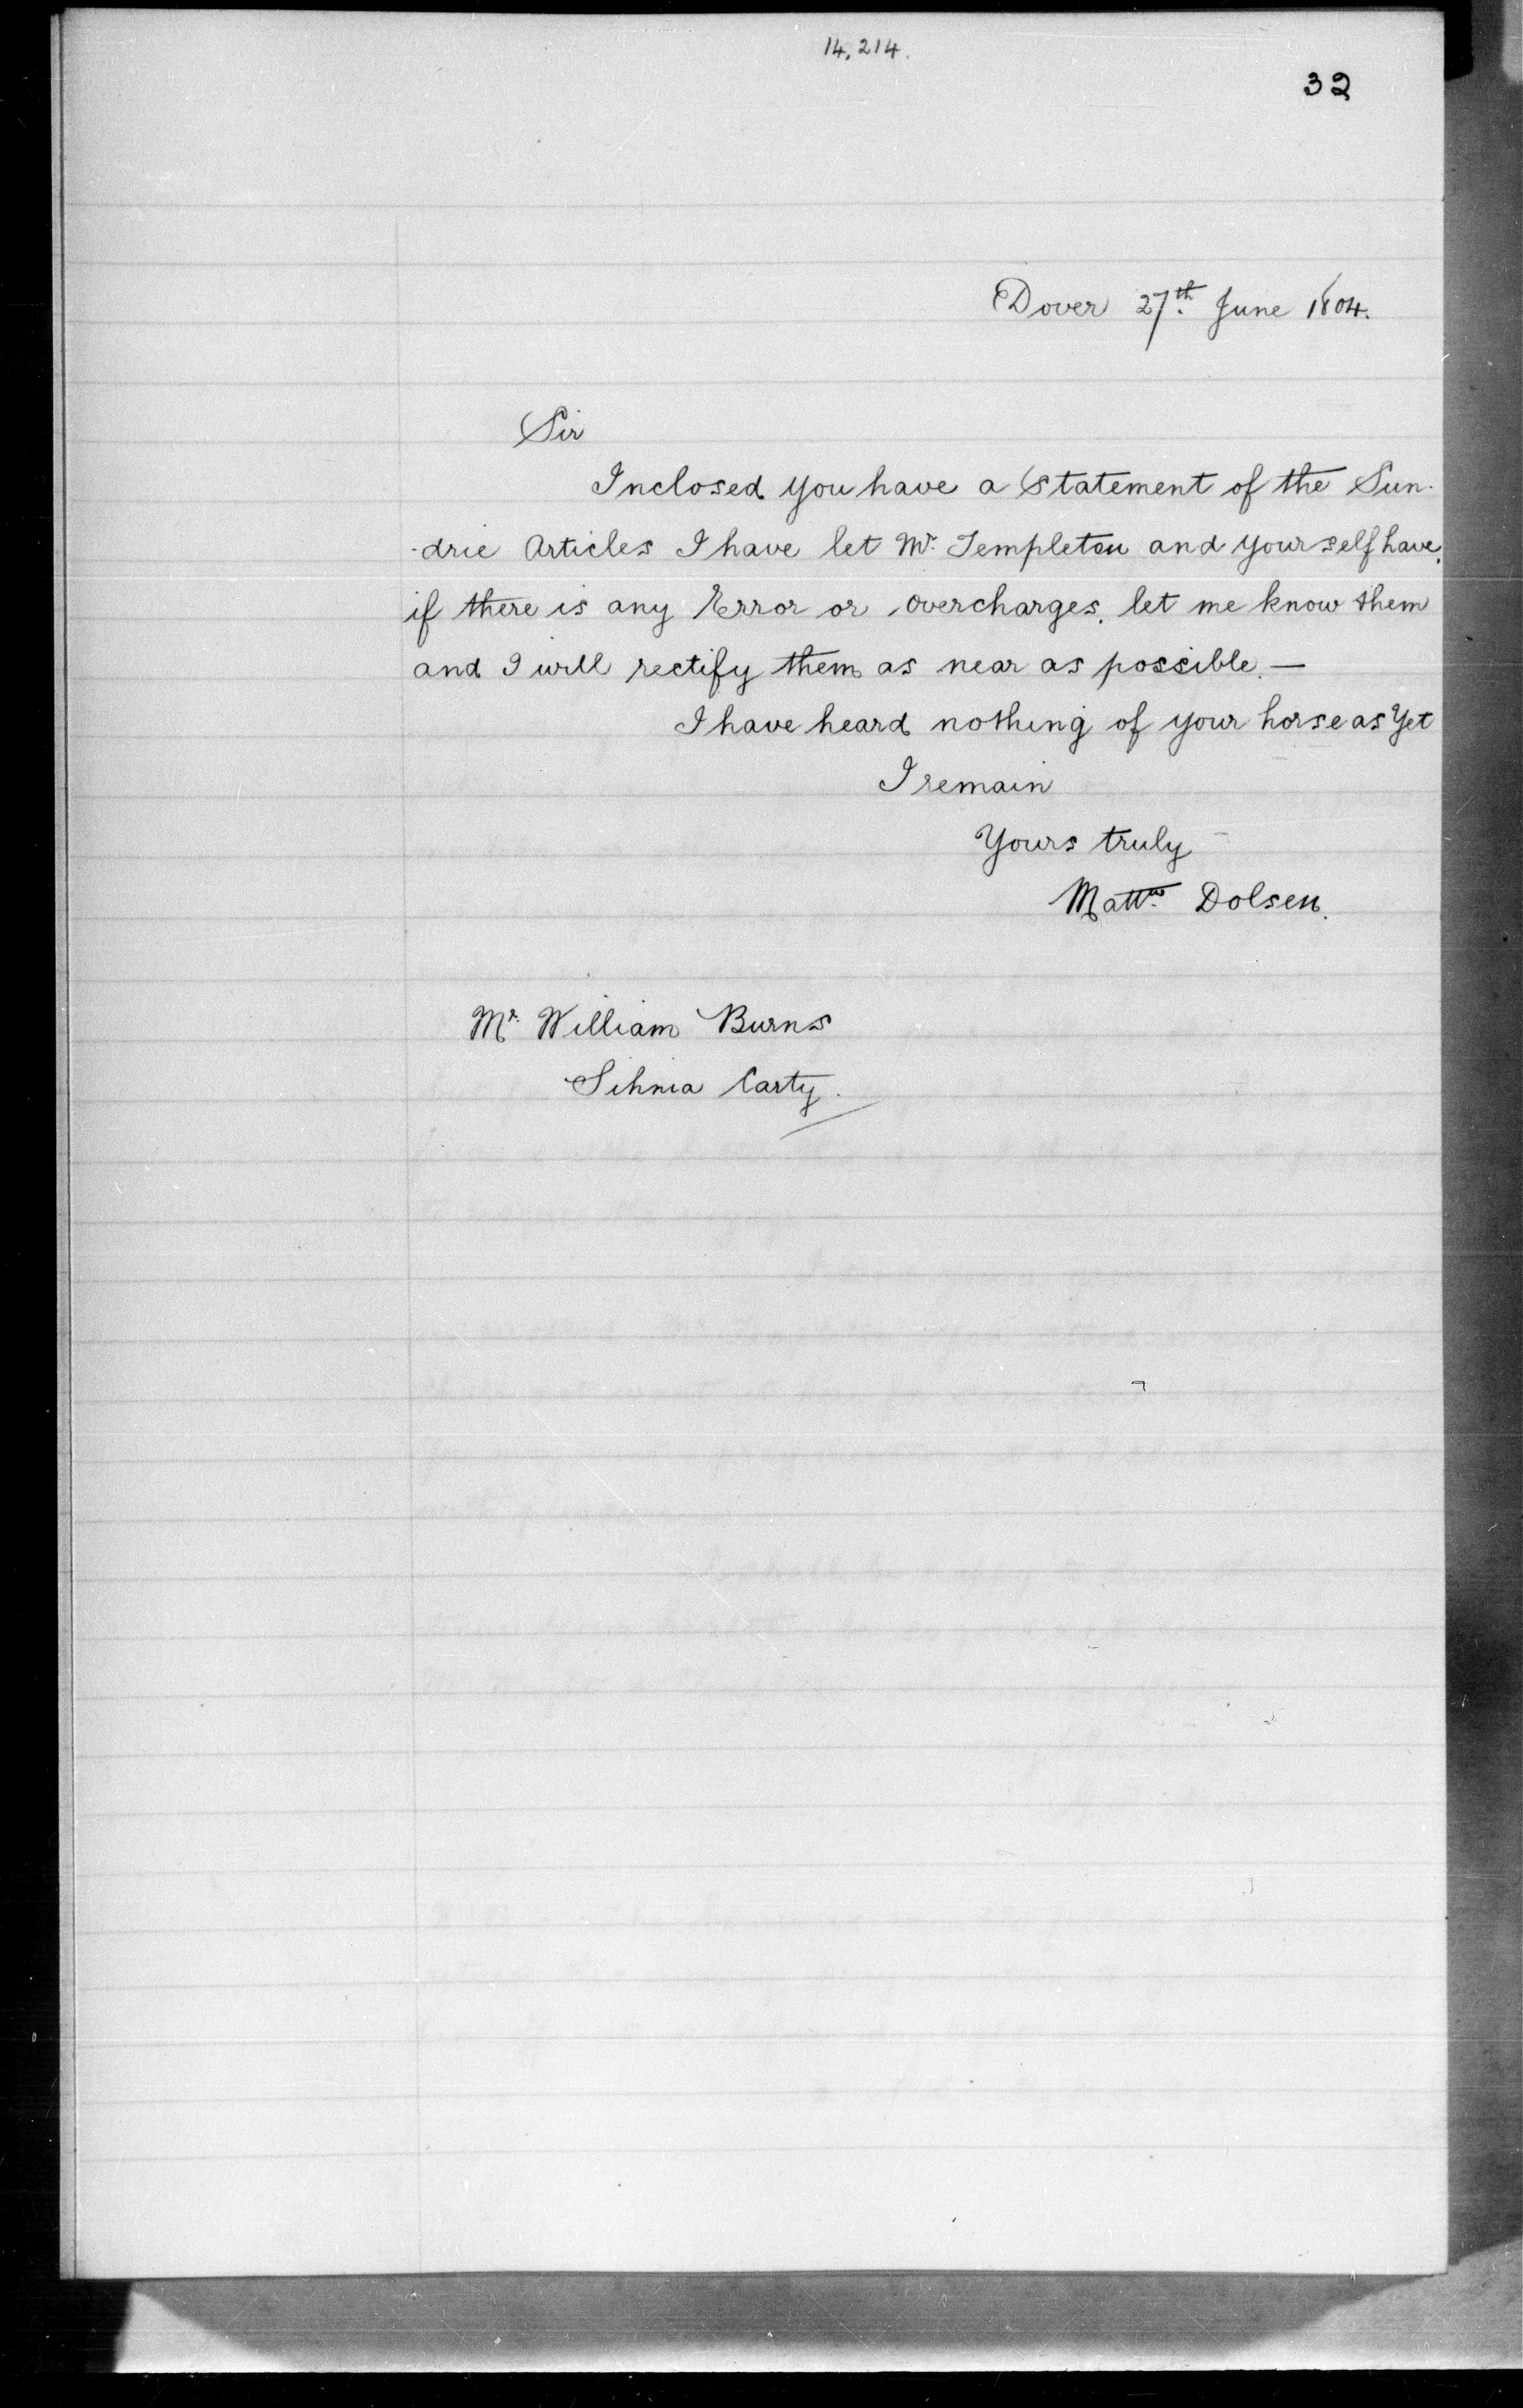 14,214.
32
Dover 27th June 1804.
Sir
Inclosed you have a Statement of the Sun-
-drie Articles I have let Mr Templeton and yourself have,
if there is any Error or overcharges, let me know them
and I will rectify them as near as possible. —
I have heard nothing of your horse as Yet
I remain
Yours truly
Mattw Dolsen.
Mr William Burns
Sihnia Carty.